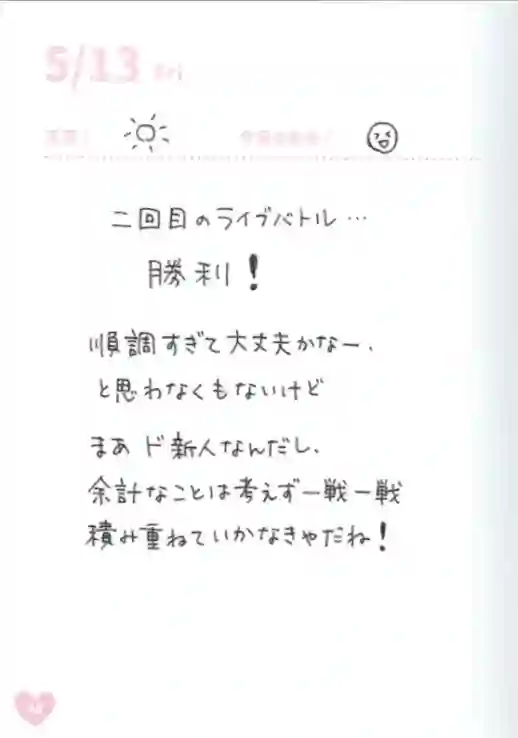 5/13 Fri
二回目のライブバトル…
勝利!
順調すぎて大丈夫かなー、
と思わなくもないけど
まあ ド新人なんだし、
余計なことは考えず一戦一戦
積み重ねていかなきゃだね!